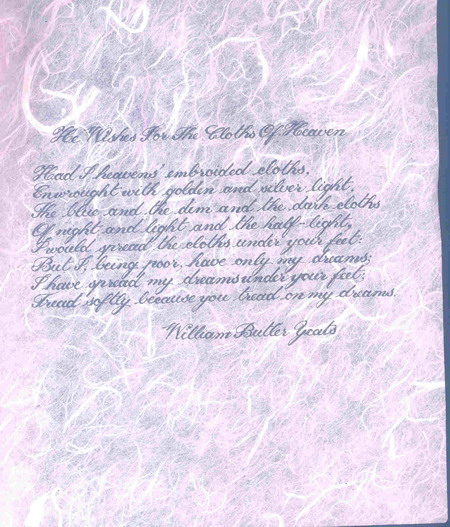 He Wishes For The Cloths Of Heaven
Had I heavens' embroided cloths,
Enwrought with golden and silver light,
The blue and the dim and the dark cloths
Of night and light and the half-light,
I would spread the cloths under your feet:
But I, being poor, have only my dreams;
I have spread my dreams under your feet;
Tread softly because you tread on my dreams.
William Butler Yeats